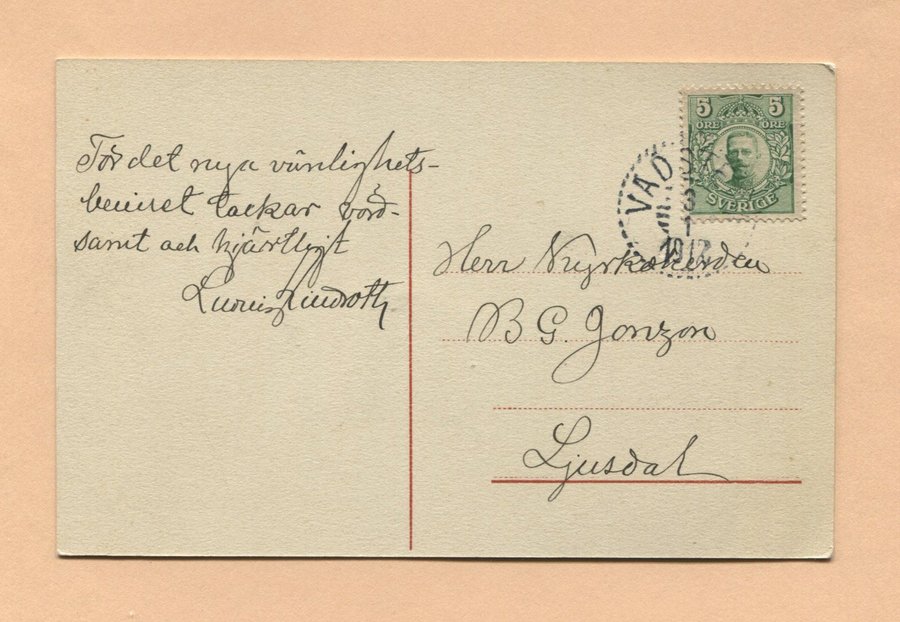 För det nya vänlighets-
beviset tackar vörd-
samt och hjärtligt
Lindroth
5 5
ÖRE ÖRE
SVERIGE
1912
Herr Kyrkoherden
B G. Jonzon
Ljusdal